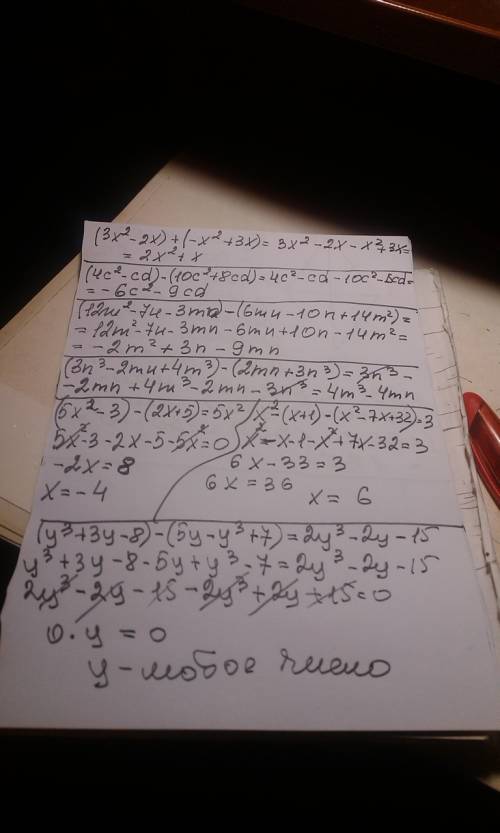 (3x²-2x)+(-x²+3x)=3x²-2x-x²+3x=
=2x²+x
(4c²-cd)-(10c²+8cd)=4c²-cd-10c²-8cd=
=-6c²-9cd
(12m²-7n-3mn)-(6mn-10n+14m²)=
=12m²-7n-3mn-6mn+10n-14m²=
=-2m²+3n-9mn
(3n³-2mn+4m³)-(2mn+3n³)=3n³-
-2mn+4m³-2mn-3n³=4m³-4mn
(5x²-3)-(2x+5)=5x²
5x²-3-2x-5-5x²=0
-2x=8
x=-4
x²-(x+1)-(x²-7x+32)=3
x²-x-1-x²+7x-32=3
6x-33=3
6x=36
x=6
(y³+3y-8)-(5y-y³+7)=2y³-2y-15
y³+3y-8-5y+y³-7=2y³-2y-15
2y³-2y-15-2y³+2y+15=0
0·y=0
y-любое число